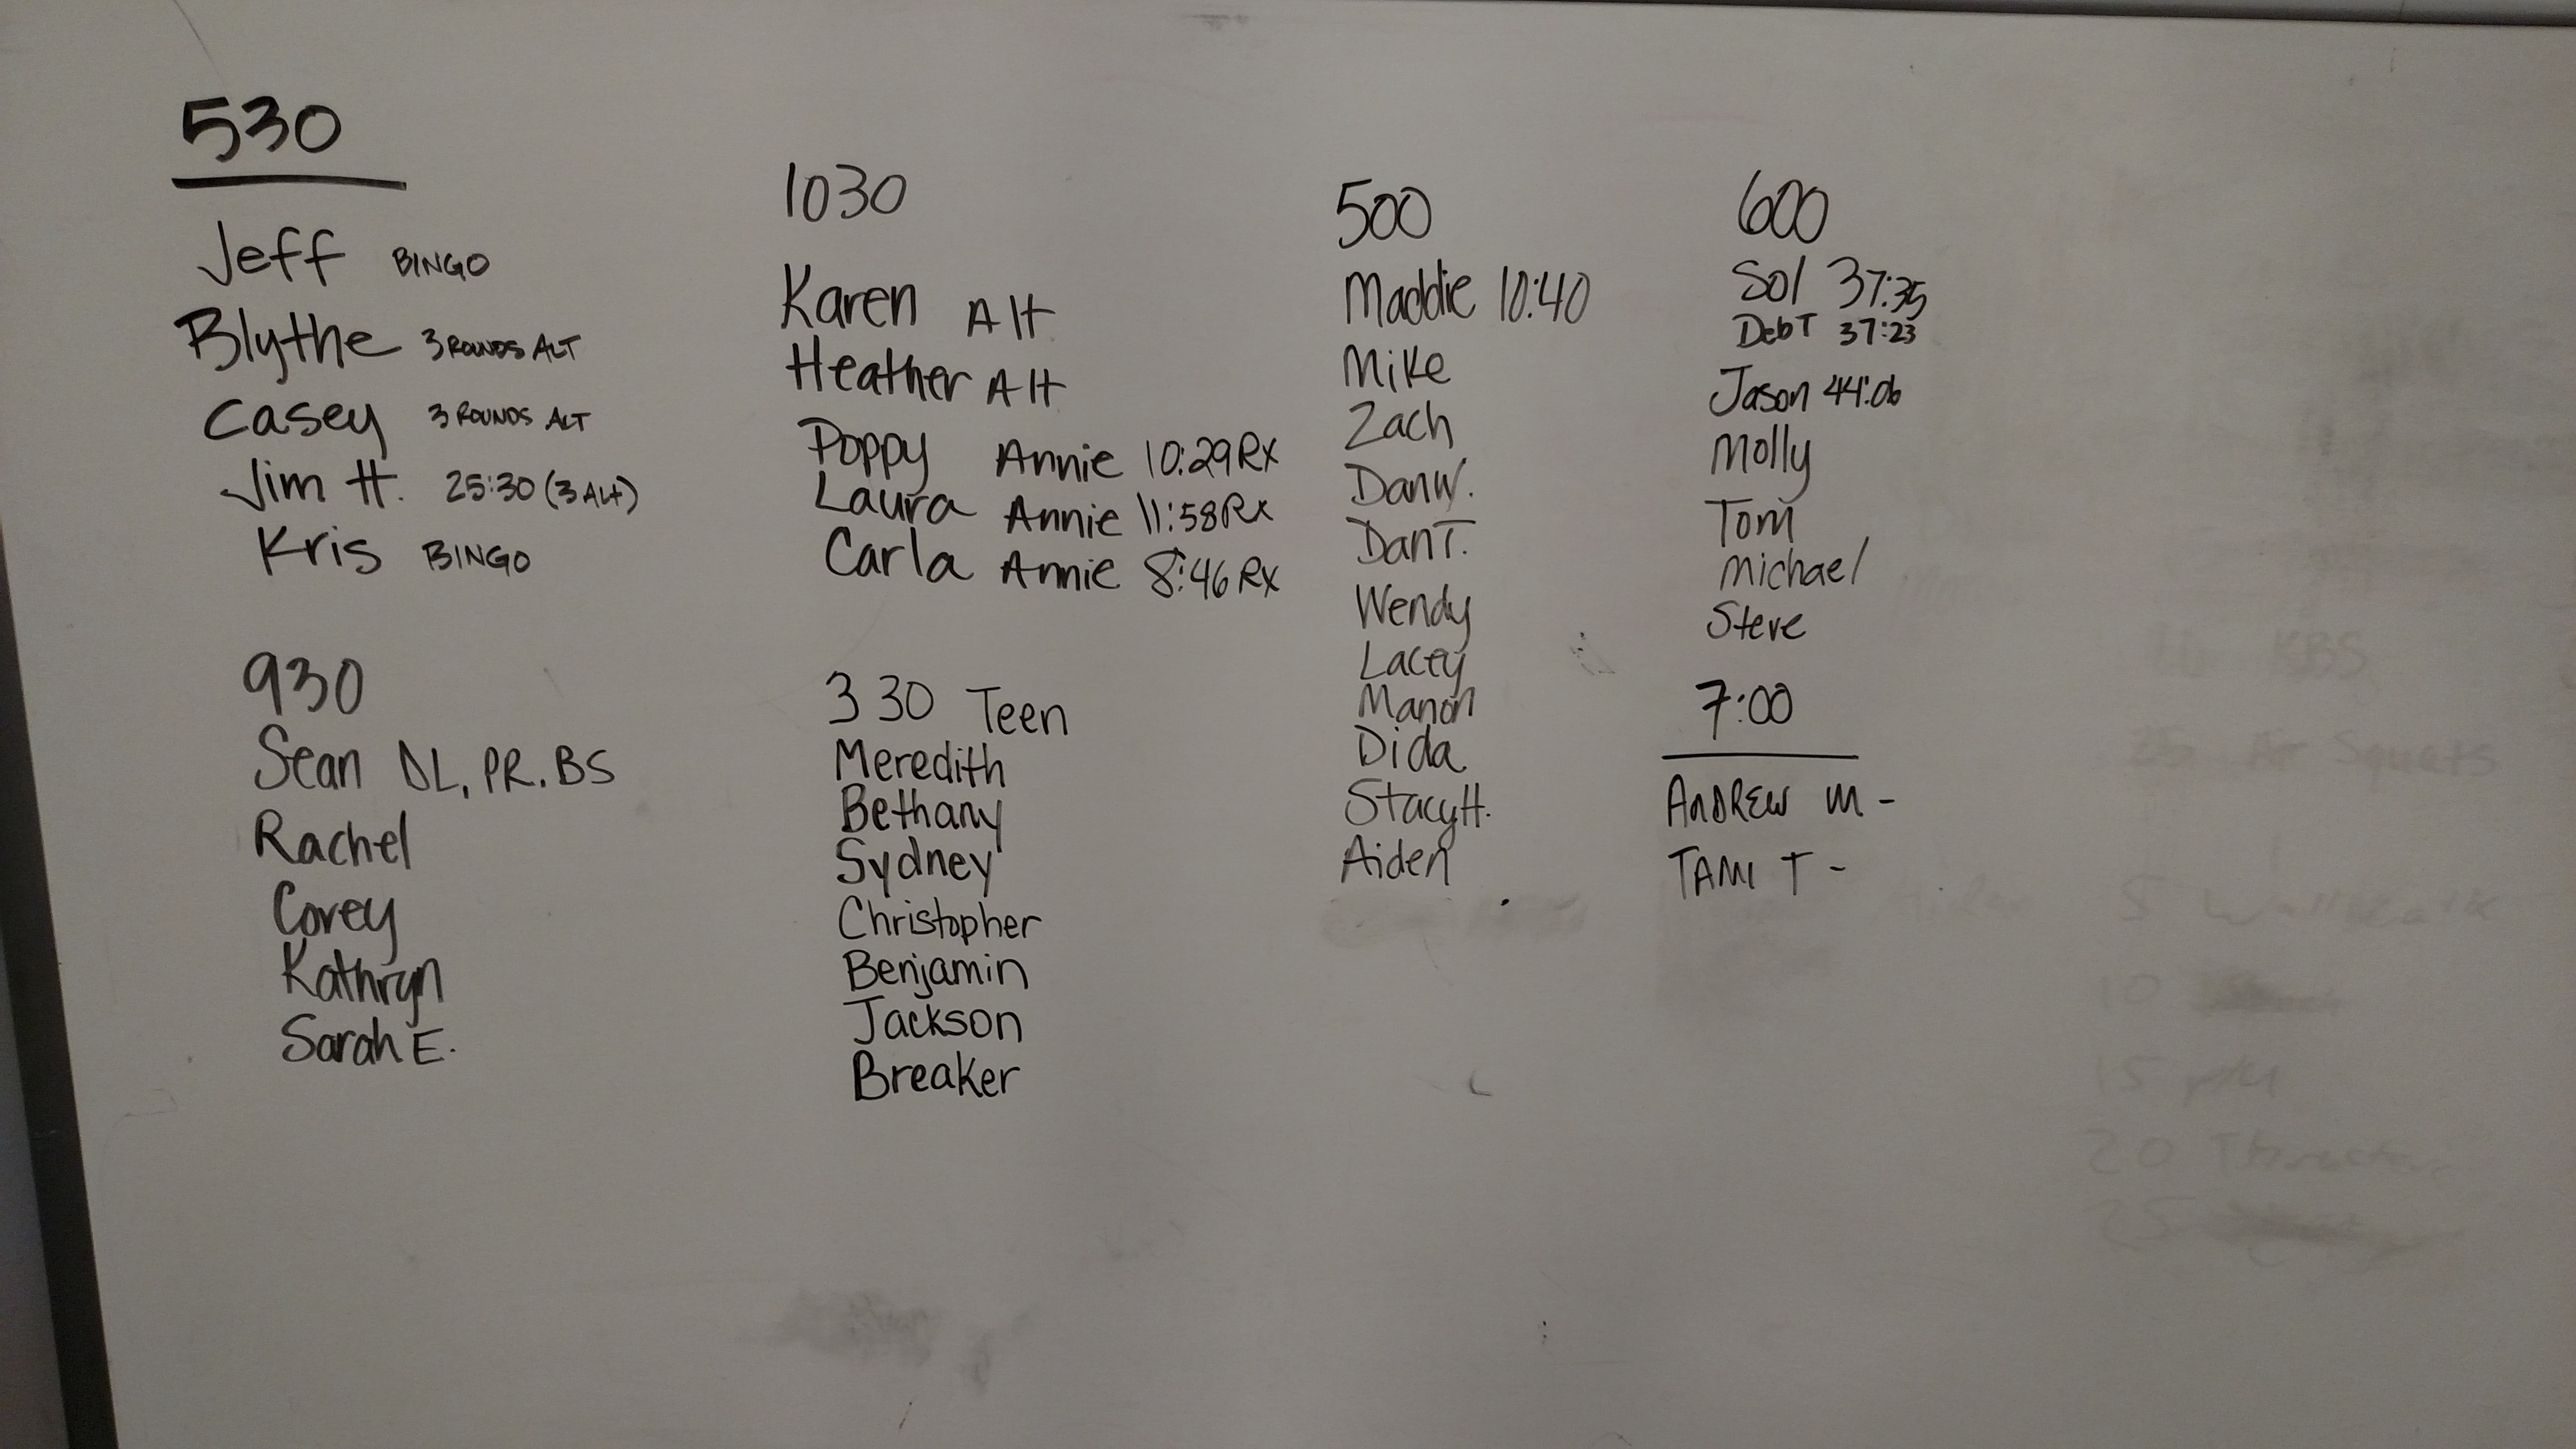 530
Jeff BINGO
Blythe 3 ROUNDS ALT
Casey 3 ROUNDS ALT
Jim H. 25:30 (3 Alt)
Kris BINGO
930
Sean DL, PR. BS
Rachel
Corey
Kathryn
Sarah E.
1030
Karen Alt
Heather Alt
Poppy Annie 10:29 Rx
Laura Annie 11:58 Rx
Carla Annie 8:46 Rx
3 30 Teen
Meredith
Bethany
Sydney
Christopher
Benjamin
Jackson
Breaker
500
Maddie 10:40
Mike
Zach
Dan W.
Dan T.
Wendy
Lacey
Manon
Dida
Stacy H.
Aiden
600
Sol 37:35
Deb T 37:23
Jason 44:06
Molly
Tom
Michael
Steve
7:00
ANDREW M -
TAMI T -
KBS
25 Air Squats
5 Wallwalk
10
15
20 Thrusters
25